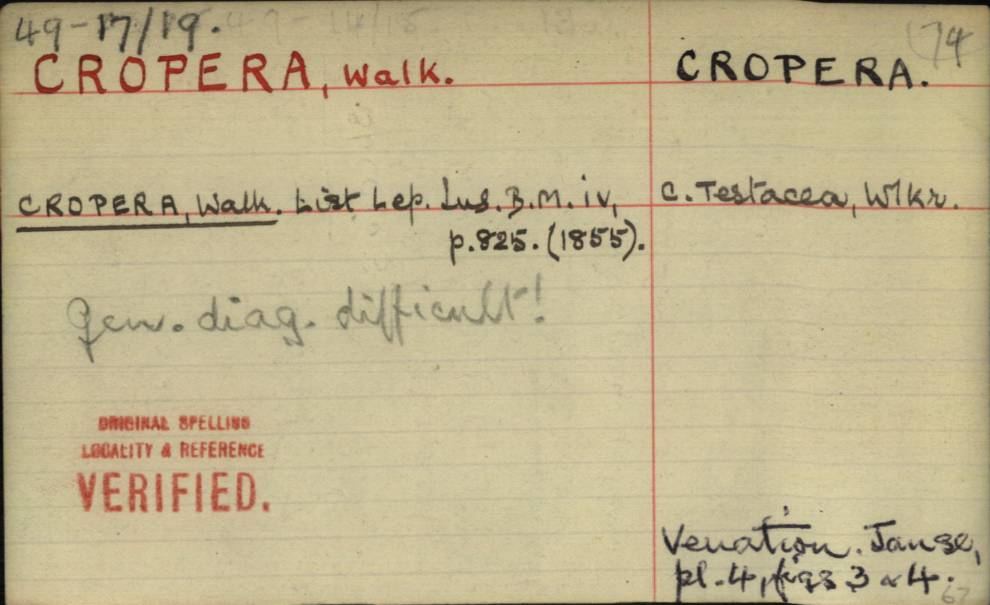 49-17/19.
74
CROPERA, Walk.
CROPERA.
CROPERA, Walk. List Lep. Ins. B.M. iv,
p.825. (1855).
C. Testacea, Wlkr.
Gen. diag. difficult!
ORIGINAL SPELLING
LOCALITY & REFERENCE
VERIFIED.
Venation. Janse,
pl. 4, figs 3 & 4.
67